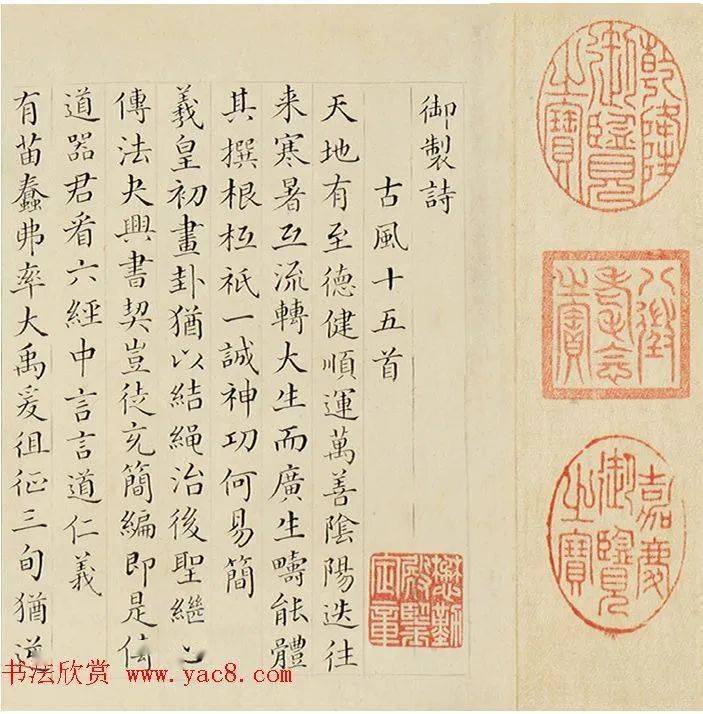 乾隆
御覽
之寶
八徵
耄念
之寶
嘉慶
御覽
之寶
御製詩
古風十五首
天地有至德健順運萬善陰陽迭往
来寒暑互流轉大生而廣生疇能體
其撰根柢祇一誠神功何易簡
羲皇初畫卦猶以結繩治後聖繼
傳法夬興書契豈徒充簡編即是
道器君看六經中言言道仁義
有苗蠢弗率大禹爰徂征三旬猶逆
懋勤
殿鑒
定章
书法欣赏 www.yac8.com